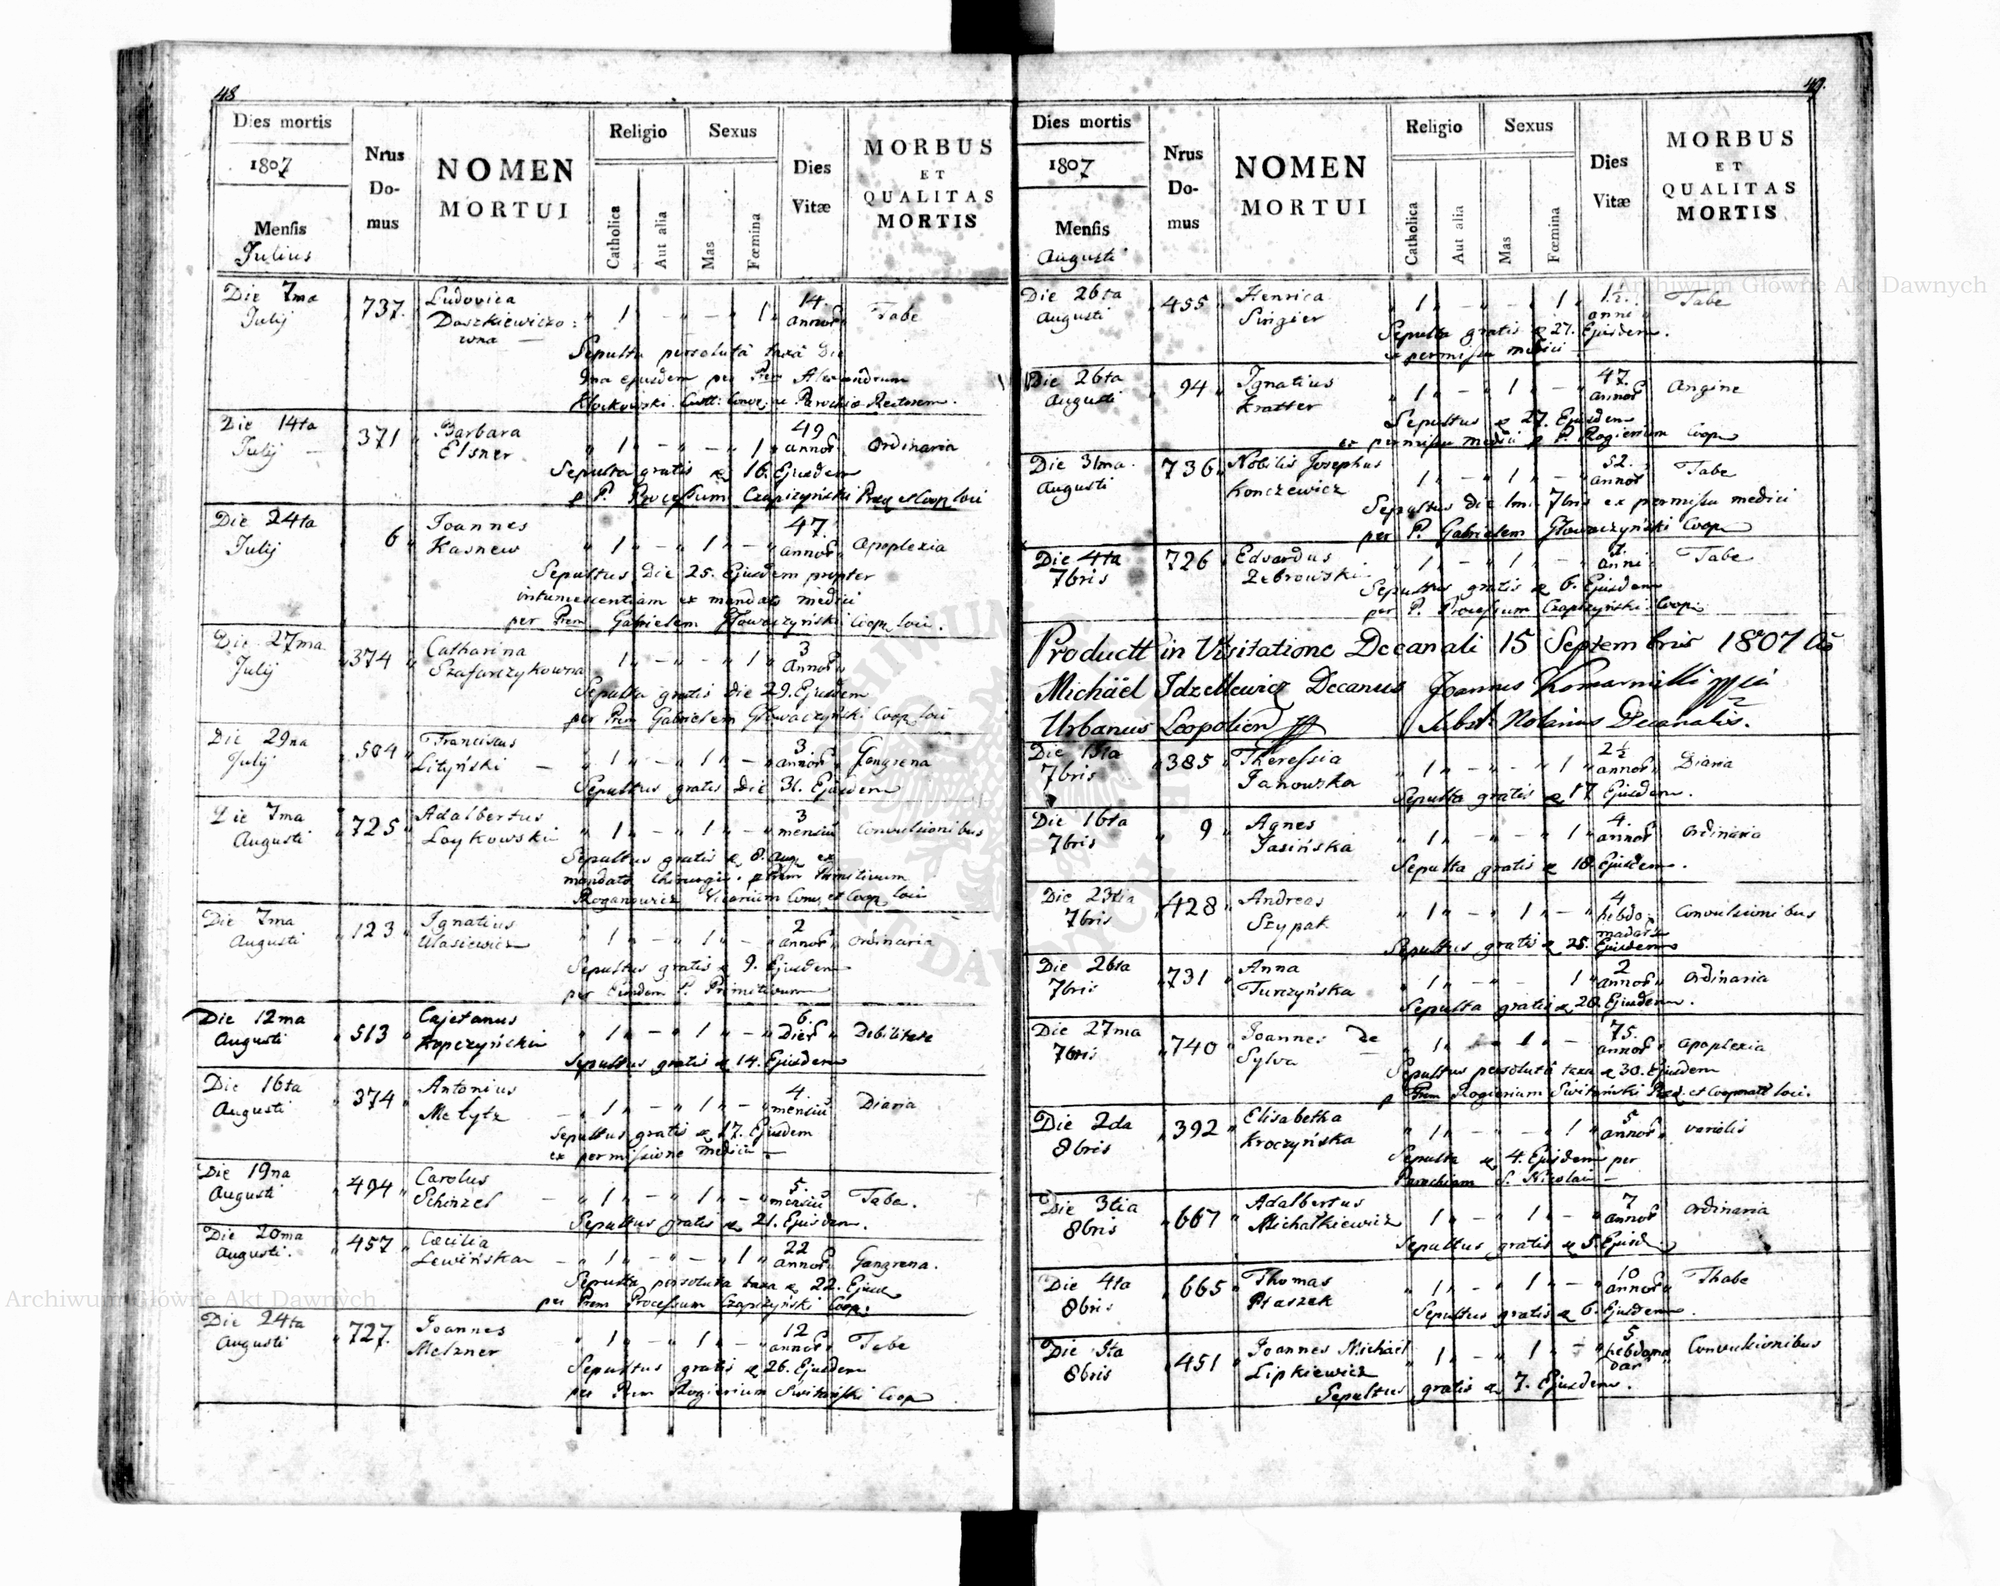 48
Dies mortis
1807
Mensis
Julius
Nrus Domus
NOMEN MORTUI
Religio
Catholica
Aut alia
Sexus
Mas
Fœmina
Dies Vitæ
MORBUS ET QUALITAS MORTIS
Die 7ma Julij 737. Ludovica Daszkiewiczo: wna — " 1 " — " — " 1 " 14. annor Tabe
Sepulta persoluta taxâ die
9na ejusdem per Prem Alexandrum
Custt: Conv, ac Parochia Rectorem.
Die 14ta Julij — 371 " Barbara Elsner " 1 " — " — " 1 " 49 annor Ordinaria
Sepulta gratis 16. Ejusdem
p P. Processum Czapczyński et Coop loci
Die 24ta Julij 6 " Joannes Kasnew " 1 " — " 1 " — " 47. annor Apoplexia
Sepultus Die 25. Ejusdem propter
intumescentiam ex mandato medici
per Prem Gabrielem Głowaczyński Coop loci.
Die 27ma Julij " 374 " Catharina Szafarczykowna " 1 " — " — " 1 " 3 Annor
Sepulta gratis die 29. Ejusdem
per Prem Gabrielem Głowaczyński Coop loci
Die 29na Julij " 504 " Franciscus Lityński — " 1 " — " 1 " — " 3. annor Gangrena
Sepultus gratis Die 31. Ejusdem
Die 7ma Augusti " 725 " Adalbertus Loykowski " 1 " — " 1 " — " 3 mensiu Convulsionibus
Sepultus gratis 8. Aug. ex
mandato Chirurgi. pPrem Primitivum
Roganowicz Vicarium Conv. et Coop loci
Die 7ma Augusti " 123 " Ignatius Ulasiewicz " 1 " — " 1 " — " 2 annor Ordinaria
Sepultus gratis 9. Ejusdem
per Eundem P. Primitivum
Die 12ma Augusti " 513 " Cajetanus Kopczyński " 1 " — " 1 " — " 6. Dier Debilitate
Sepultus gratis 14. Ejusdem
Die 16ta Augusti " 374 " Antonius Metytz — " 1 " — " 1 " — " 4. mensiu Diaria
Sepultus gratis 17. Ejusdem
ex permissione medici —
Die 19na Augusti " 494 " Carolus Schinzel — " 1 " — " 1 " — " 5. mensiu Tabe.
Sepultus gratis 21. Ejusdem.
Die 20ma Augusti. " 457 " Cæcilia Lewińska — " 1 " — " — " 1 " 22 annor Gangrena.
Sepulta persoluta taxa 22. Ejusd
per Prem Processum Czapczyński Coop:
Die 24ta Augusti " 727. Joannes Melzner " 1 " — " 1 " — " 12 annor Tabe
Sepultus gratis 26. Ejusdem
per Prem Rogierium Switański Coop
49.
Dies mortis
1807
Mensis
Augusti
Nrus Domus
NOMEN MORTUI
Religio
Catholica
Aut alia
Sexus
Mas
Fœmina
Dies Vitæ
MORBUS ET QUALITAS MORTIS
Die 26ta Augusti " 455 " Henrica Singier " 1 " — " — " 1 " anni Tabe
Sepulta gratis 27. Ejusdem.
ex permissu medici —
Die 26ta Augusti " 94 " Ignatius Kratter " 1 " — " 1 " — " 47. annor Angine
Sepultus 27. Ejusdem
ex permissu medici p P. Rogierium Coop
Die 31ma. Augusti " 736 " Nobilis Josephus Konczewicz " 1 " — " 1 " — " 52. annor Tabe
Sepultus die 1ma 7bris ex permissu medici
per P. Gabrielem Głowaczyński Coop
Die 4ta 7bris " 726 " Edvardus Zebrowski " 1 " — " 1 " — " anni Tabe
Sepultus gratis 6. Ejusdem
per P. Processum Czapczyński Coop.
Productt in Visitatione Decanali 15 Septembris 1807
Michäel Idzellewicz Decanus Joannes Komarnicki
Urbanus Leopolien Subst: Notarius Decanalis.
Die 15ta 7bris " 385 " Theressia Janowska " 1 " — " — " 1 " 2½ annor Diaria
Sepulta gratis 17 Ejusdem.
Die 16ta 7bris " 9 " Agnes Jasińska " 1 " — " — " 1 " 4. annor Ordinaria
Sepulta gratis 18 Ejusdem.
Die 23tia 7bris " 428 " Andreas Szypak " 1 " — " 1 " — " 4 hebdomadar Convulsionibus
Sepultus gratis 25. Ejusdem
Die 26ta 7bris " 731 " Anna Turczyńska " 1 " — " — " 1 " 2 annor Ordinaria
Sepulta gratis 28. Ejusdem.
Die 27ma 7bris " 740 " Joannes De Sylva — " 1 " — " 1 " — " 75. annor Apoplexia
Sepultus persolutâ taxa 30. Ejusdem
p Prem Rogierium Switański et Cooprat loci.
Die 2da 8bris " 392 " Elisabetha Kroczyńska " 1 " — " — " 1 " 5 annor variolis
Sepulta 4. Ejusdem per
Parochiam S. Nicolai —
Die 3tia 8bris " 667 " Adalbertus Michałkiewicz 1 " — " 1 " — " 7 annor Ordinaria
Sepultus gratis 5. Ejusd.
Die 4ta 8bris " 665 " Thomas Ptaszek " 1 " — " 1 " — " 10 annor Thabe
Sepultus gratis 6. Ejusdem.
Die 5ta 8bris " 451 " Joannes Michael Lipkiewicz " 1 " — " 1 " — " 5 hebdomadar Convulsionibus
Sepultus gratis 7. Ejusdem.
Archiwum Główne Akt Dawnych
Archiwum Główne Akt Dawnych